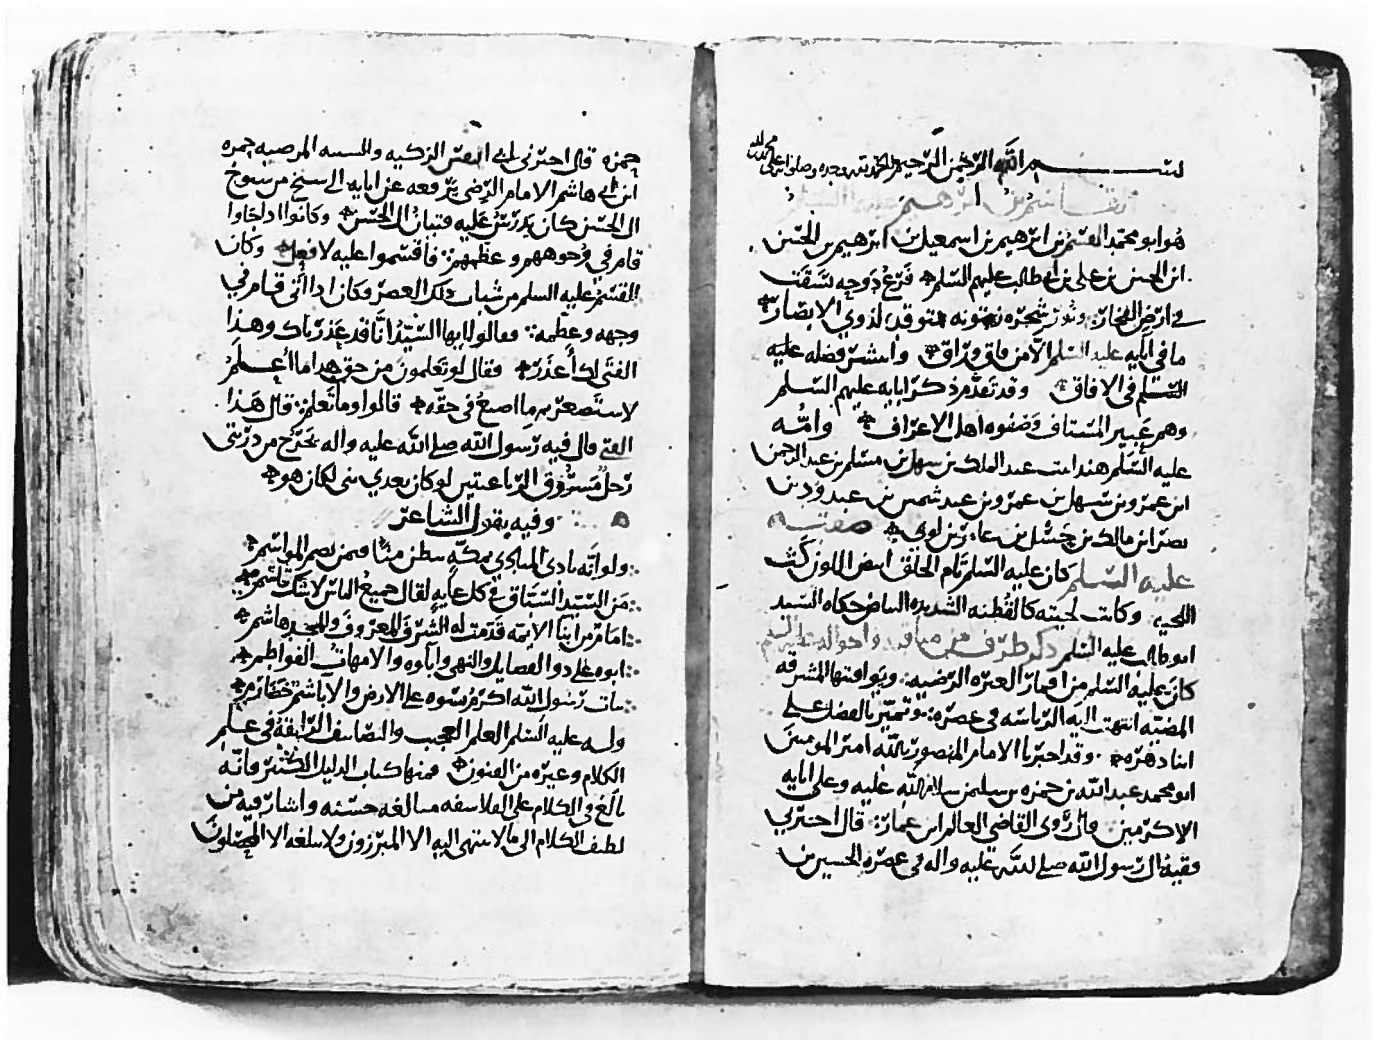 بسم الله الرحمن الرحيم
القاسم بن ابرهيم عليه السلم
هو ابو محمد القسم بن ابرهيم بن اسمعيل بن ابرهيم بن الحسن
ابن الحسن بن علي بن ابي طالب عليهم السلم فرع دوحه سقت
في ارض الفخار ونور شجره زيتونه متوقد لذوي الابصار
ما في ابايه عليه السلم الا من فاق وراق وانتشر فضله عليه
السلم في الافاق وقد تقدم ذكر ابايه عليهم السلم
وهم عبير المستاف وصفوه اهل الاعراف وامه
عليه السلم هند ابنت عبد الملك بن سهل بن مسلم بن عبد الرحمن
ابن عمرو بن سهل بن عمرو بن عبد شمس بن عبد ود بن
نصر ابن مالك بن حسل بن عامر بن لوي صفته
عليه السلم كان عليه السلم تام الخلق ابيض اللون كث
اللحيه وكانت لحيته كالقطنه الشديده البياض حكاه السيد
ابو طالب عليه السلم ذكر طرف من مناقبه واحواله عليه السلم
كان عليه السلم من اقمار العتره الرضيه ويواقيتها المشرقه
المضيه انتهت اليه الرياسه في عصره وتميز بالفضل على
ابنا دهره وقد اخبرنا الامام المنصور بالله امير المومنين
ابو محمد عبد الله بن حمزه بن سليمن سلام الله عليه وعلى ابايه
الاكرمين قال روى القاضي العالم ابن عمار قال اخبرني
فقيه ال رسول الله صلى الله عليه واله في عصره الحسين بن
حمزه قال اخبرني ابي النفس الزكيه والنسمه المرضيه حمزه
ابن ابي هاشم الامام الرضي يرفعه عن ابايه الى شيخ من شيوخ
ال الحسن كان يدرس عليه فتيان ال الحسن وكانوا اذا جاوا
قام في وجوههم وعظمهم فاقسموا عليه لا فعل وكان
القسم عليه السلم من شباب ذلك العصر وكان اذا اتى قام في
وجهه وعظمه فقالوا يا ايها السيد انا قد عذرناك وهذا
الفتى لك اعذر فقال لو تعلمون من حق هذا ما اعلم
لاستصغرتم ما اصنع في حقه قالوا وما تعلم قال هذا
الفتى قال فيه رسول الله صلى الله عليه واله يخرج من ذريتي
رجل مسروق الرباعيتين لو كان بعدي نبي لكان هو
وفيه يقول الشاعر
ولو انه نادى المنادي بمكه ببطن منا فيمن تضم المواسم
من السيد السباق في كل غايه لقال جميع الناس لا شك قاسم
امام من ابنا الايمه قدمت له الشرف المعروف والمجد هاشم
ابوه علي ذو الفضايل والنهى واباوه والامهات الفواطم
بنات رسول الله اكرم نسوه على الارض والابا شم خضارم
وله عليه السلم العلم العجيب والتصانيف الرايقه في علم
الكلام وغيره من الفنون فمنها كتاب الدليل الكبير فانه
بالغ في الكلام على الفلاسفه مبالغه حسنه واشار فيه من
لطيف الكلام الى ما لا ينتهي اليه الا المبرزون ولا يبلغه الا المحصلون